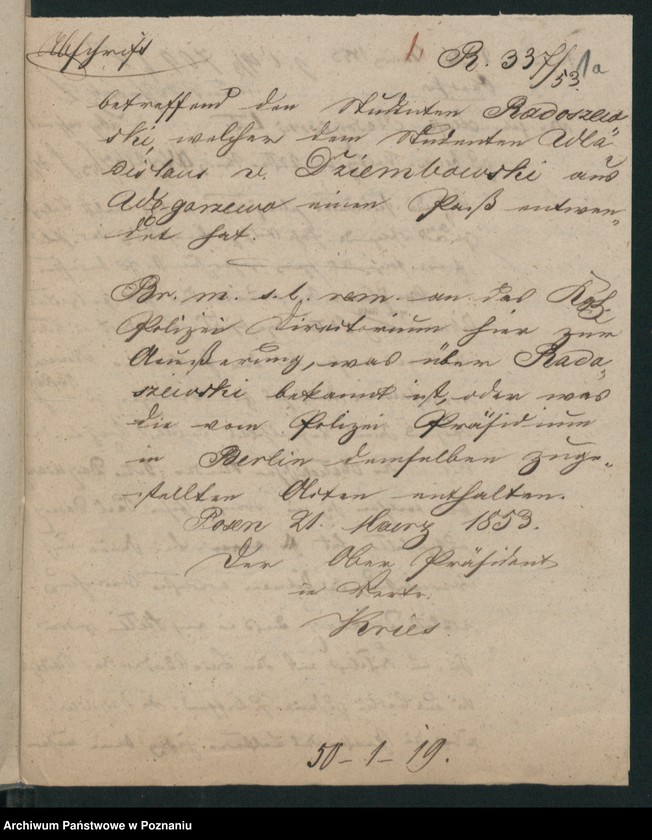 Abschrift
R. 337/53. 1a
betreffend den Studenten Radoszew
ski, welcher dem Studenten Wla„
dislaus v. Dziembowski aus
Węgorzewo einen Paß entwen„
det hat.
Br. m. s. l. rem. an das Kgl.
Polizei Directorium hier zur
Aeußerung, was über Rado„
szewski bekannt ist, oder was
die vom Polizei Präsidium
in Berlin demselben zuge„
stellten Akten enthalten.
Posen 21. Maerz 1853.
Der Ober Präsident
in Vertr.
Kries.
50-1-19.
Archiwum Państwowe w Poznaniu